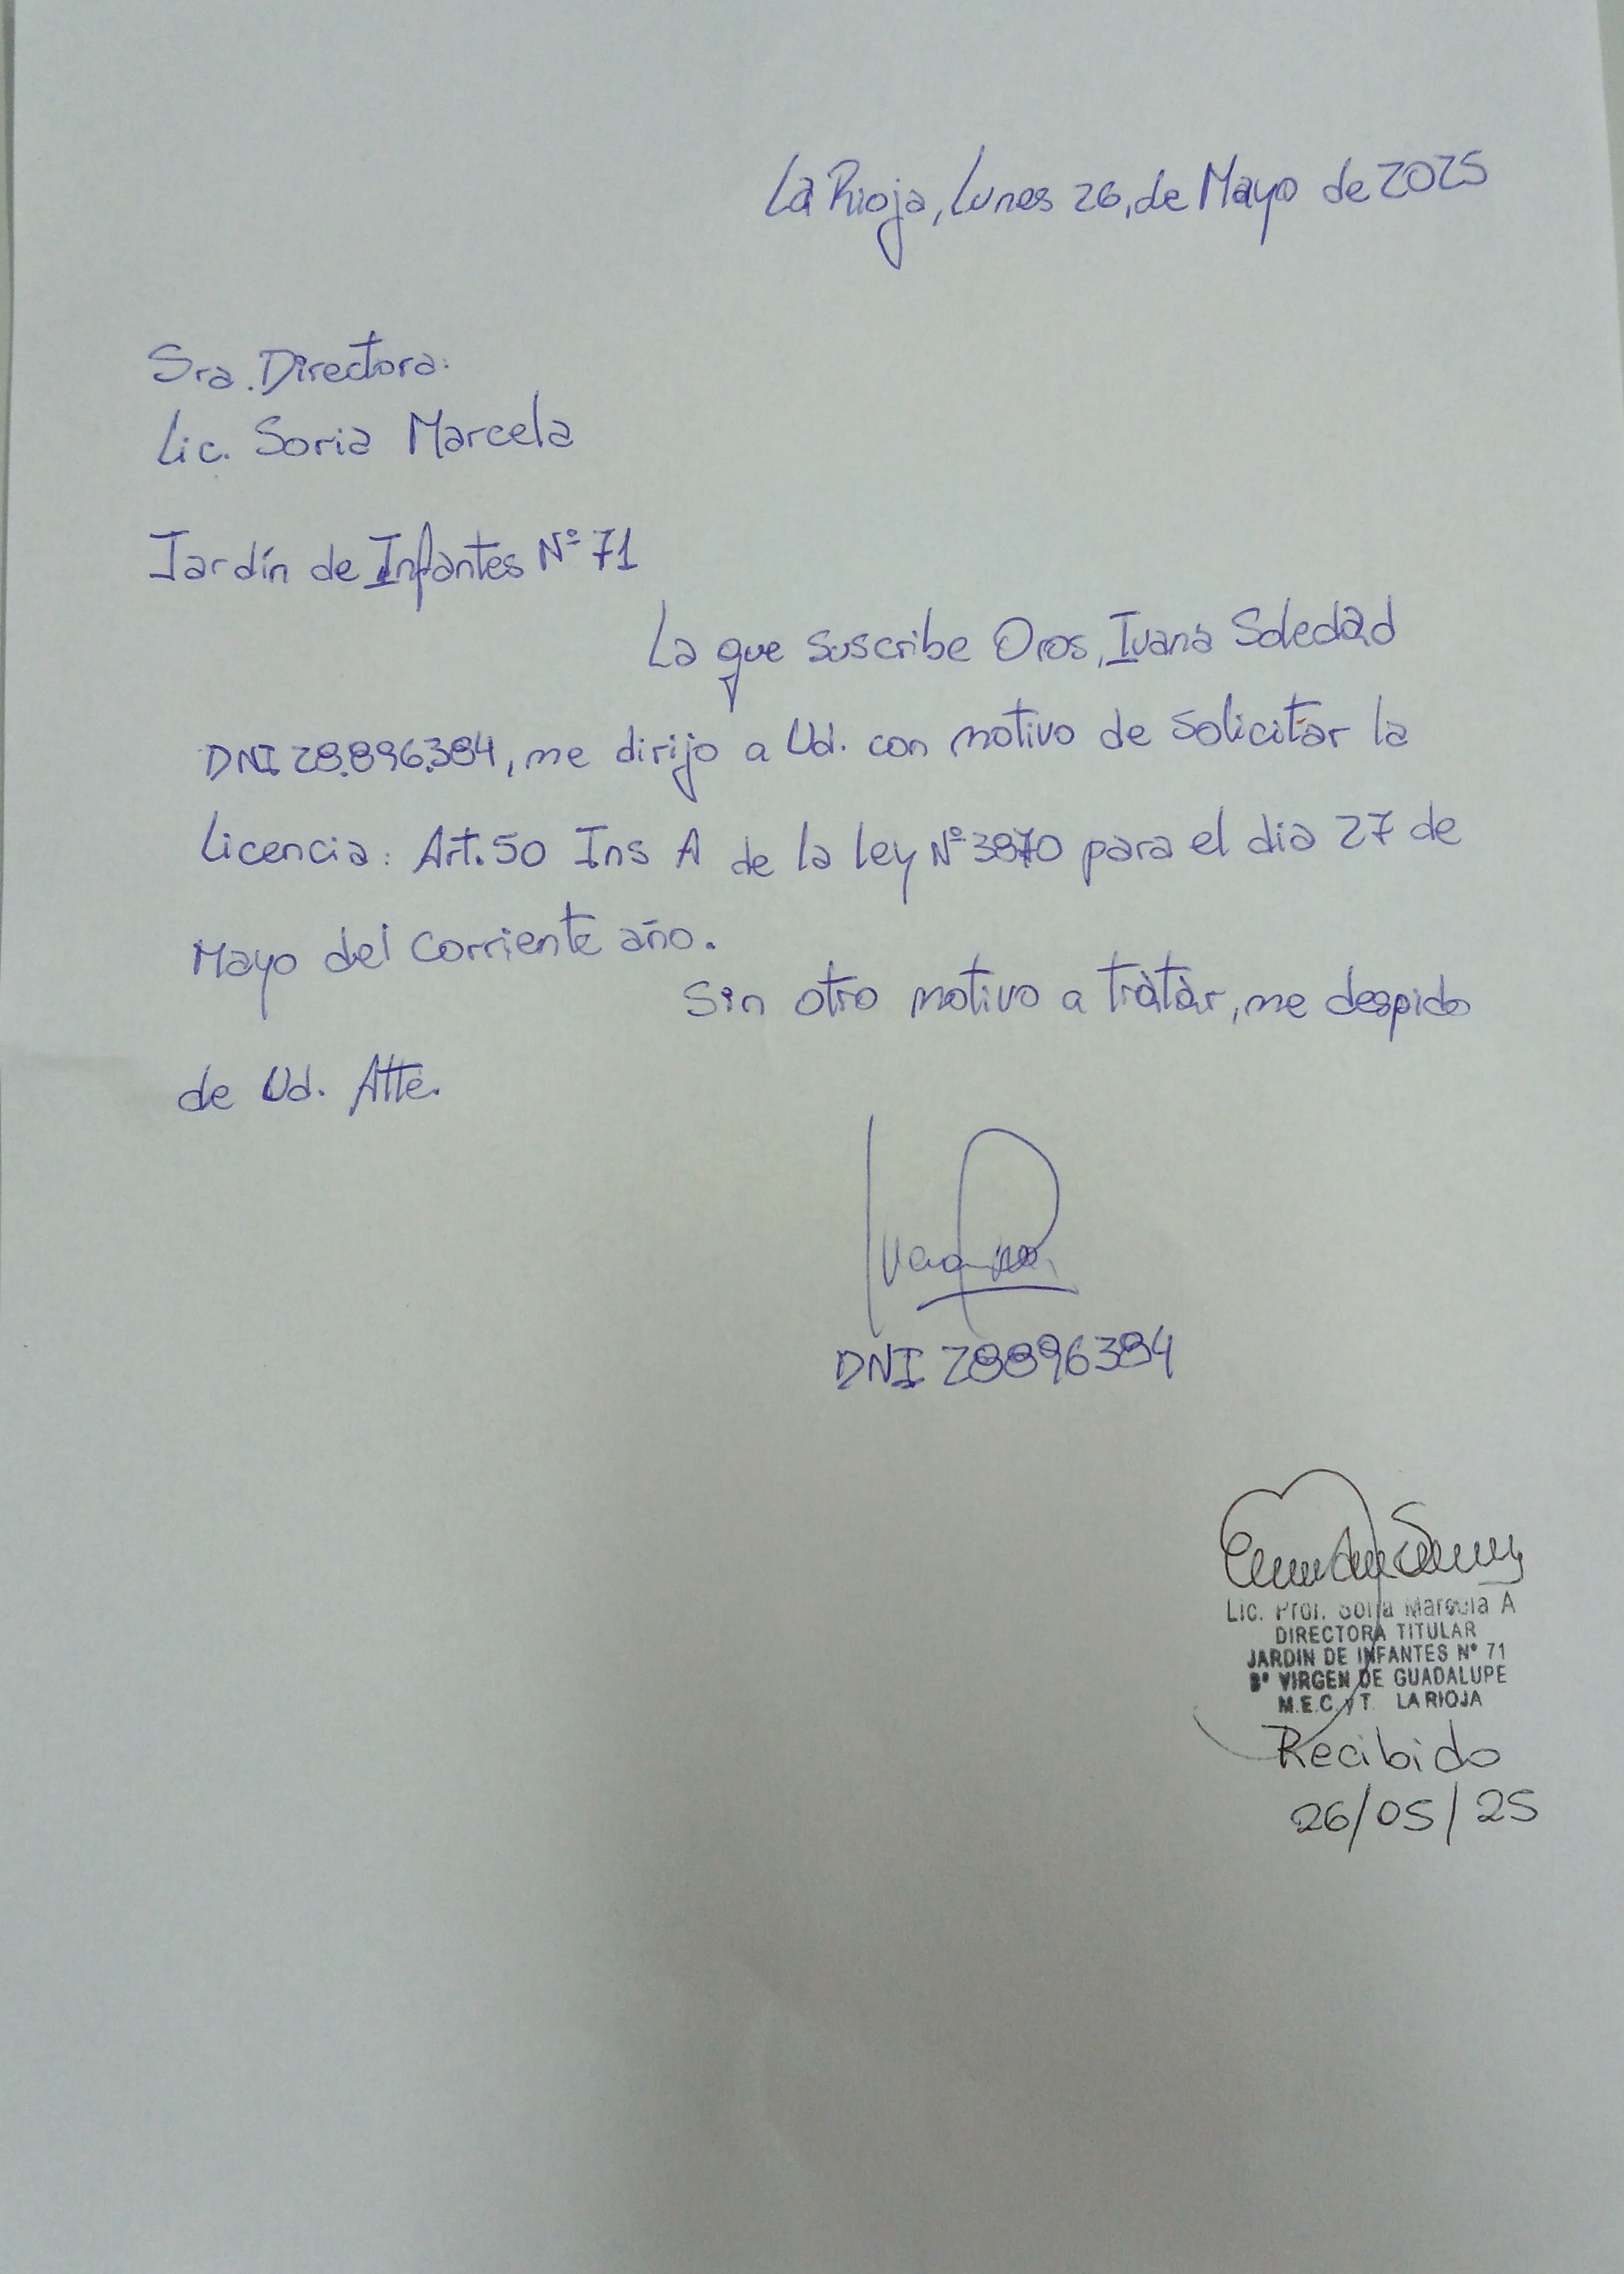 La Rioja, Lunes 26, de Mayo de 2025
Sra. Directora:
Lic. Soria Marcela
Jardín de Infantes Nº 71
La que suscribe Oros, Ivana Soledad
DNI 28.896.384, me dirijo a Ud. con motivo de solicitar la
Licencia: Art. 50 Ins A de la ley Nº 3870 para el dia 27 de
Mayo del corriente año.
Sin otro motivo a tratar, me despido
de Ud. Atte.
DNI 28896384
Lic. Prof. Soria Marcela A
DIRECTORA TITULAR
JARDIN DE INFANTES Nº 71
Bº VIRGEN DE GUADALUPE
M.E.C. y T. LA RIOJA
Recibido
26/05/25